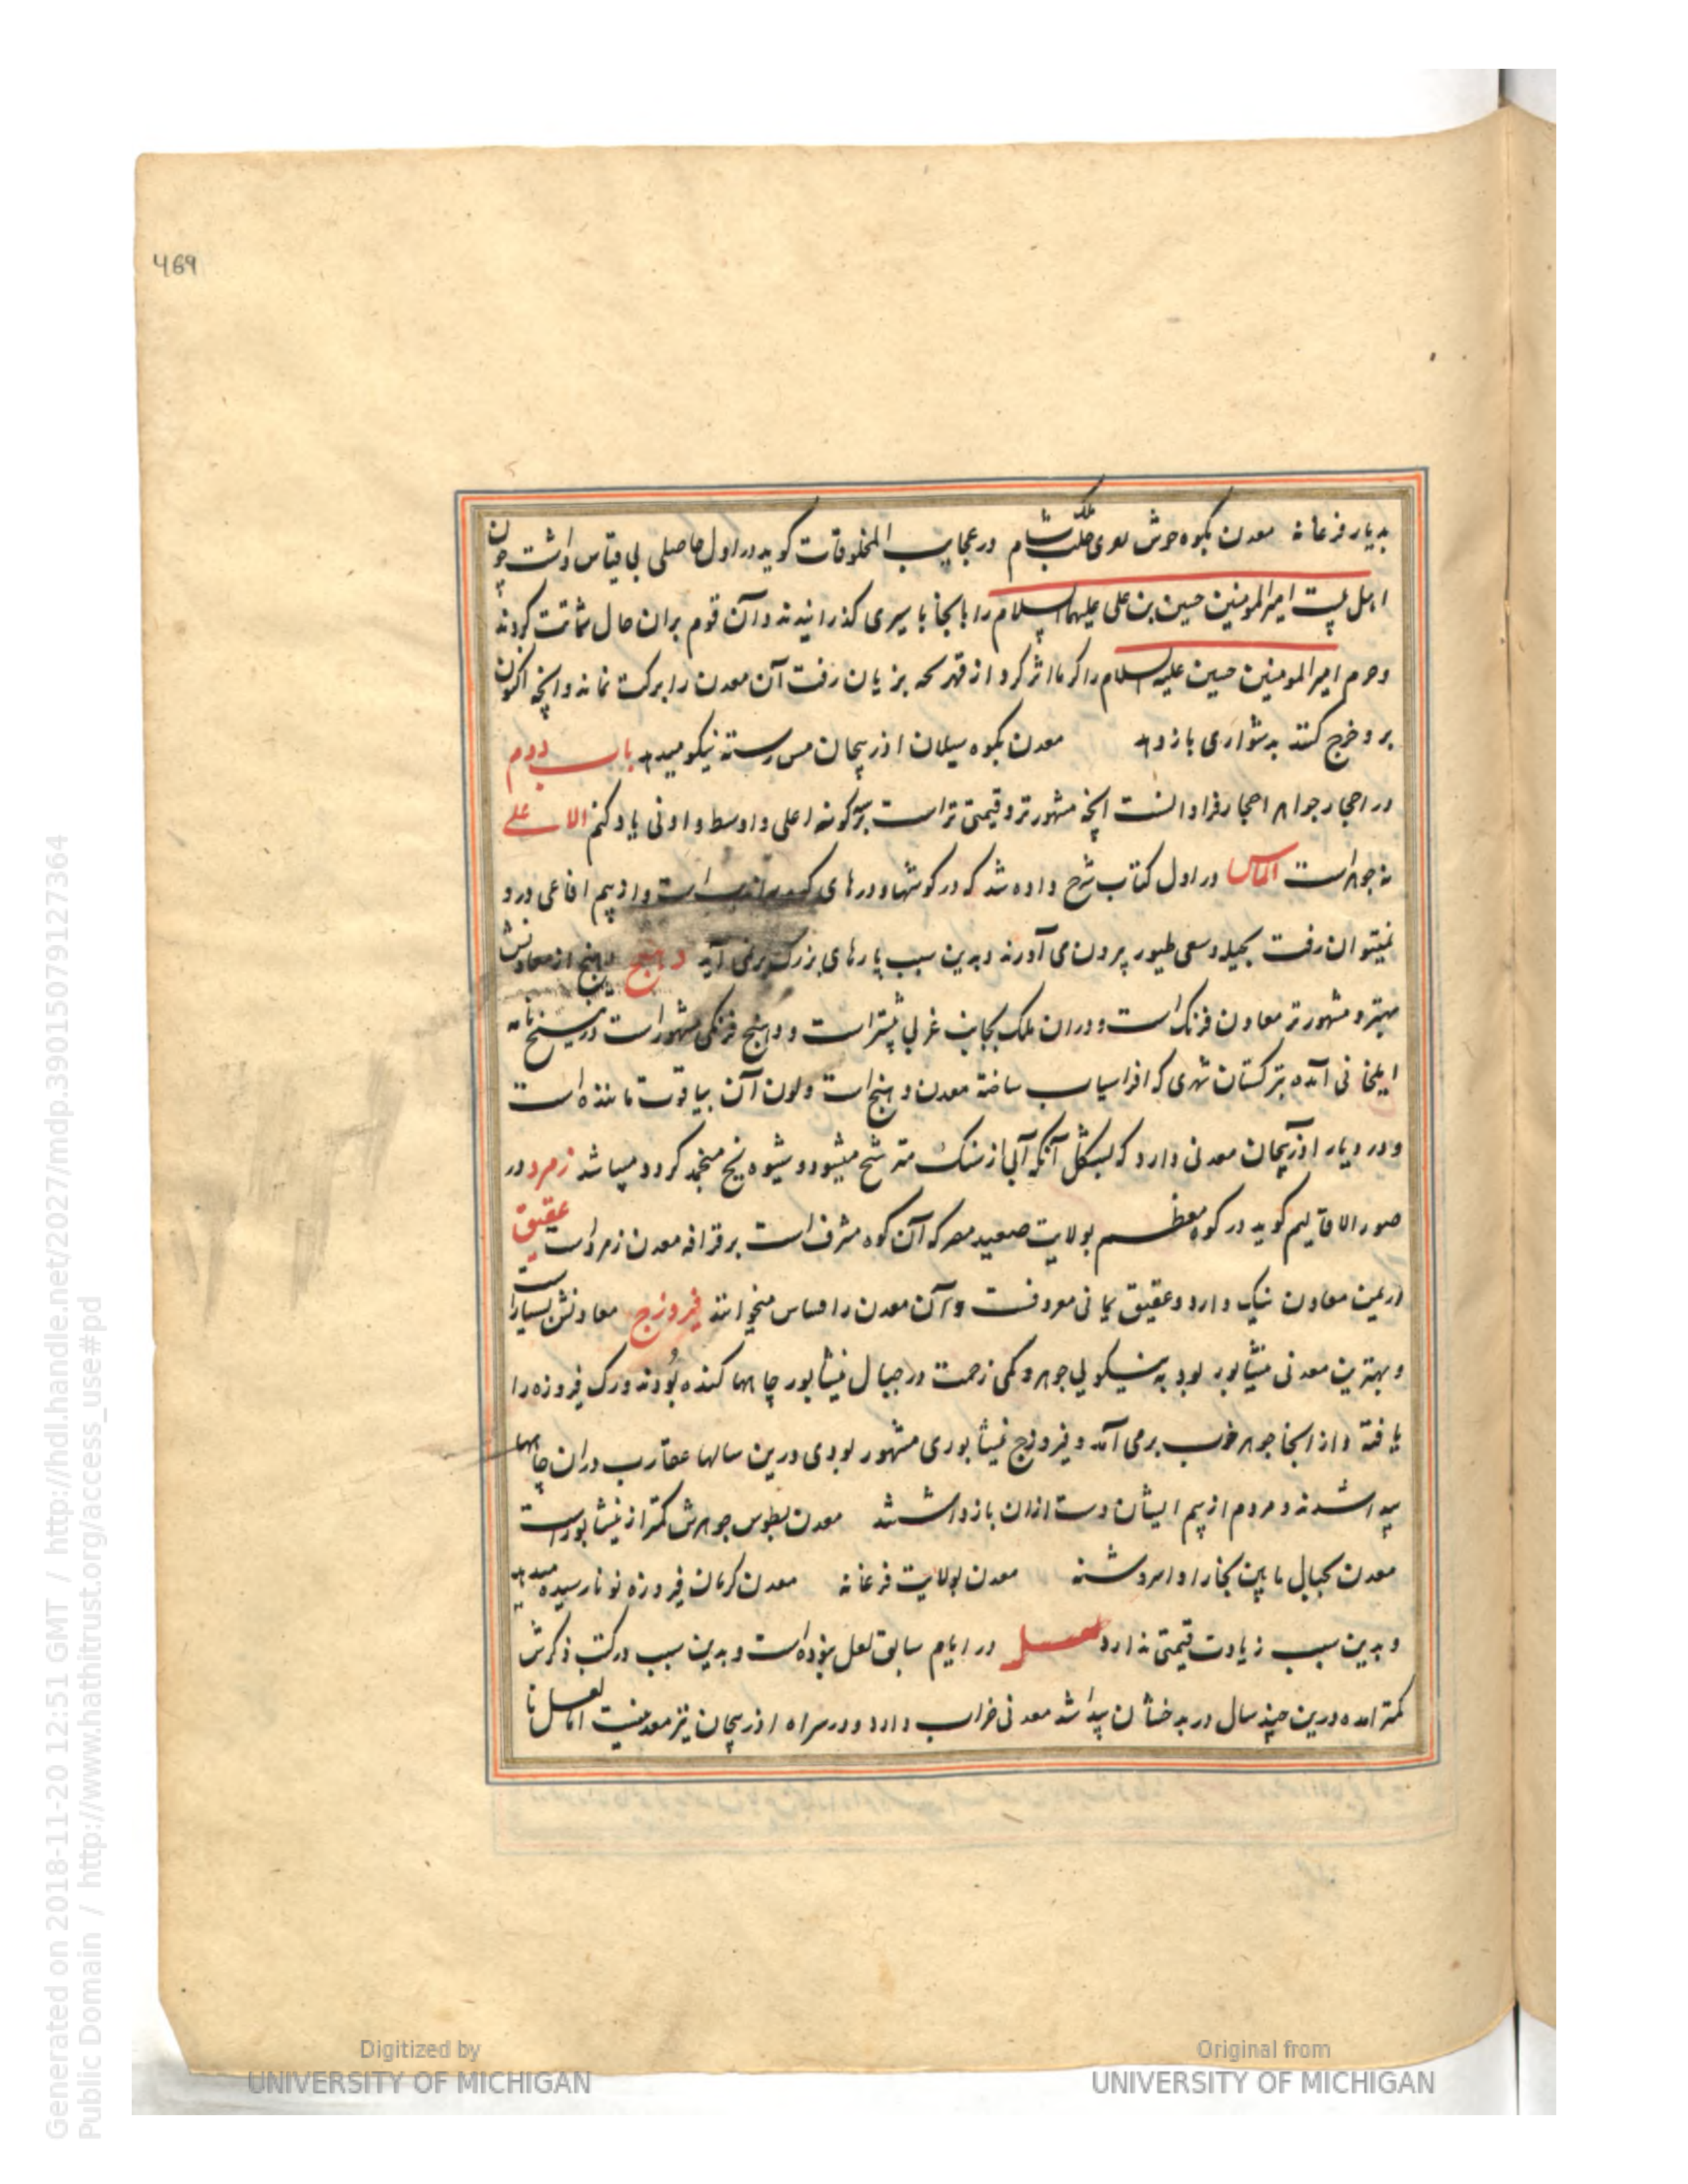 469
بدیار فرغانه معدن بکوه جوش بملک شام در عجایب المخلوقات کوید در اول حاصلی بی قیاس داشت چون
اهل بیت امیرالمومنین حسین بن علی علیهما السلام را بانجا باسیری کذرانیدند و آن قوم بران حال شماتت کردند
و حرم امیرالمومنین حسین علیه السلام را کرما اثر کرد از قهر بزیان رفت آن معدن را برکت نماند و انچه اکنون
برو خرج کنند بدشواری بازدهد معدن بکوه سیلان اذربیجان مس رسته نیکو میدهد باب دوم
در احجار جواهر احجار فراوانست انچه مشهورتر و قیمتی تر است بر سه کونه اعلی و اوسط و ادنی یاد کنم الاعلی
نه جوهر است الماس در اول کتاب شرح داده شد که در کوشها و درهای است و از بیم افاعی درو
نمیتوان رفت بحیله و سعی طیور بیرون می آورند و بدین سبب پارهای بزرک برنمی آید دهنج دهنج از معادنش
بهتر و مشهورتر معادن فرنک است و دران ملک بجانب غربی بیشتر است و دهنج فرنکی مشهور است در تنسخ نامه
ایلخانی آمده بترکستان شهری که افراسیاب ساخته معدن دهنج است و لون آن بیاقوت ماننده است
و در دیار اذربیجان معدنی دارد که بشکل آنکه آبی از سنک مترشح میشود و بشیوه یخ منجمد کردد میباشد زمرد در
صور الاقالیم کوید در کوه معظم بولایت صعید مصر که آن کوه مشرف است بر قرافه معدن زمرد است عقیق
در یمن معادن نیک دارد و عقیق یمانی معروفست و آن معدن را میخوانند فیروزج معادنش بسیار است
و بهترین معدنی نیشابور بود به نیکویی جوهر و کمی زحمت در جبال نیشابور چاهها کنده بودند و رک فیروزه را
یافته و از انجا جوهر خوب برمی آمد و فیروزج نیشابوری مشهور بودی درین سالها عقارب دران چاهها
پیدا شدند و مردم از بیم ایشان دست ازان بازداشتند معدن بطوس جوهرش کمتر از نیشابور است
معدن بجبال مابین بخارا و اسروشنه معدن بولایت فرغانه معدن کرمان فیروزه نونارسیده میدهد
و بدین سبب زیادت قیمتی ندارد لعل در ایام سابق لعل نبوده است و بدین سبب در کتب ذکرش
کمتر امده و درین چند سال در بدخشان پیدا شد معدنی خراب دارد و در سراه اذربیجان نیز معدنیست اما لعل نا
Digitized by
UNIVERSITY OF MICHIGAN
Original from
UNIVERSITY OF MICHIGAN
Generated on 2018-11-20 12:51 GMT / http://hdl.handle.net/2027/mdp.39015079127364
Public Domain / http://www.hathitrust.org/access_use#pd